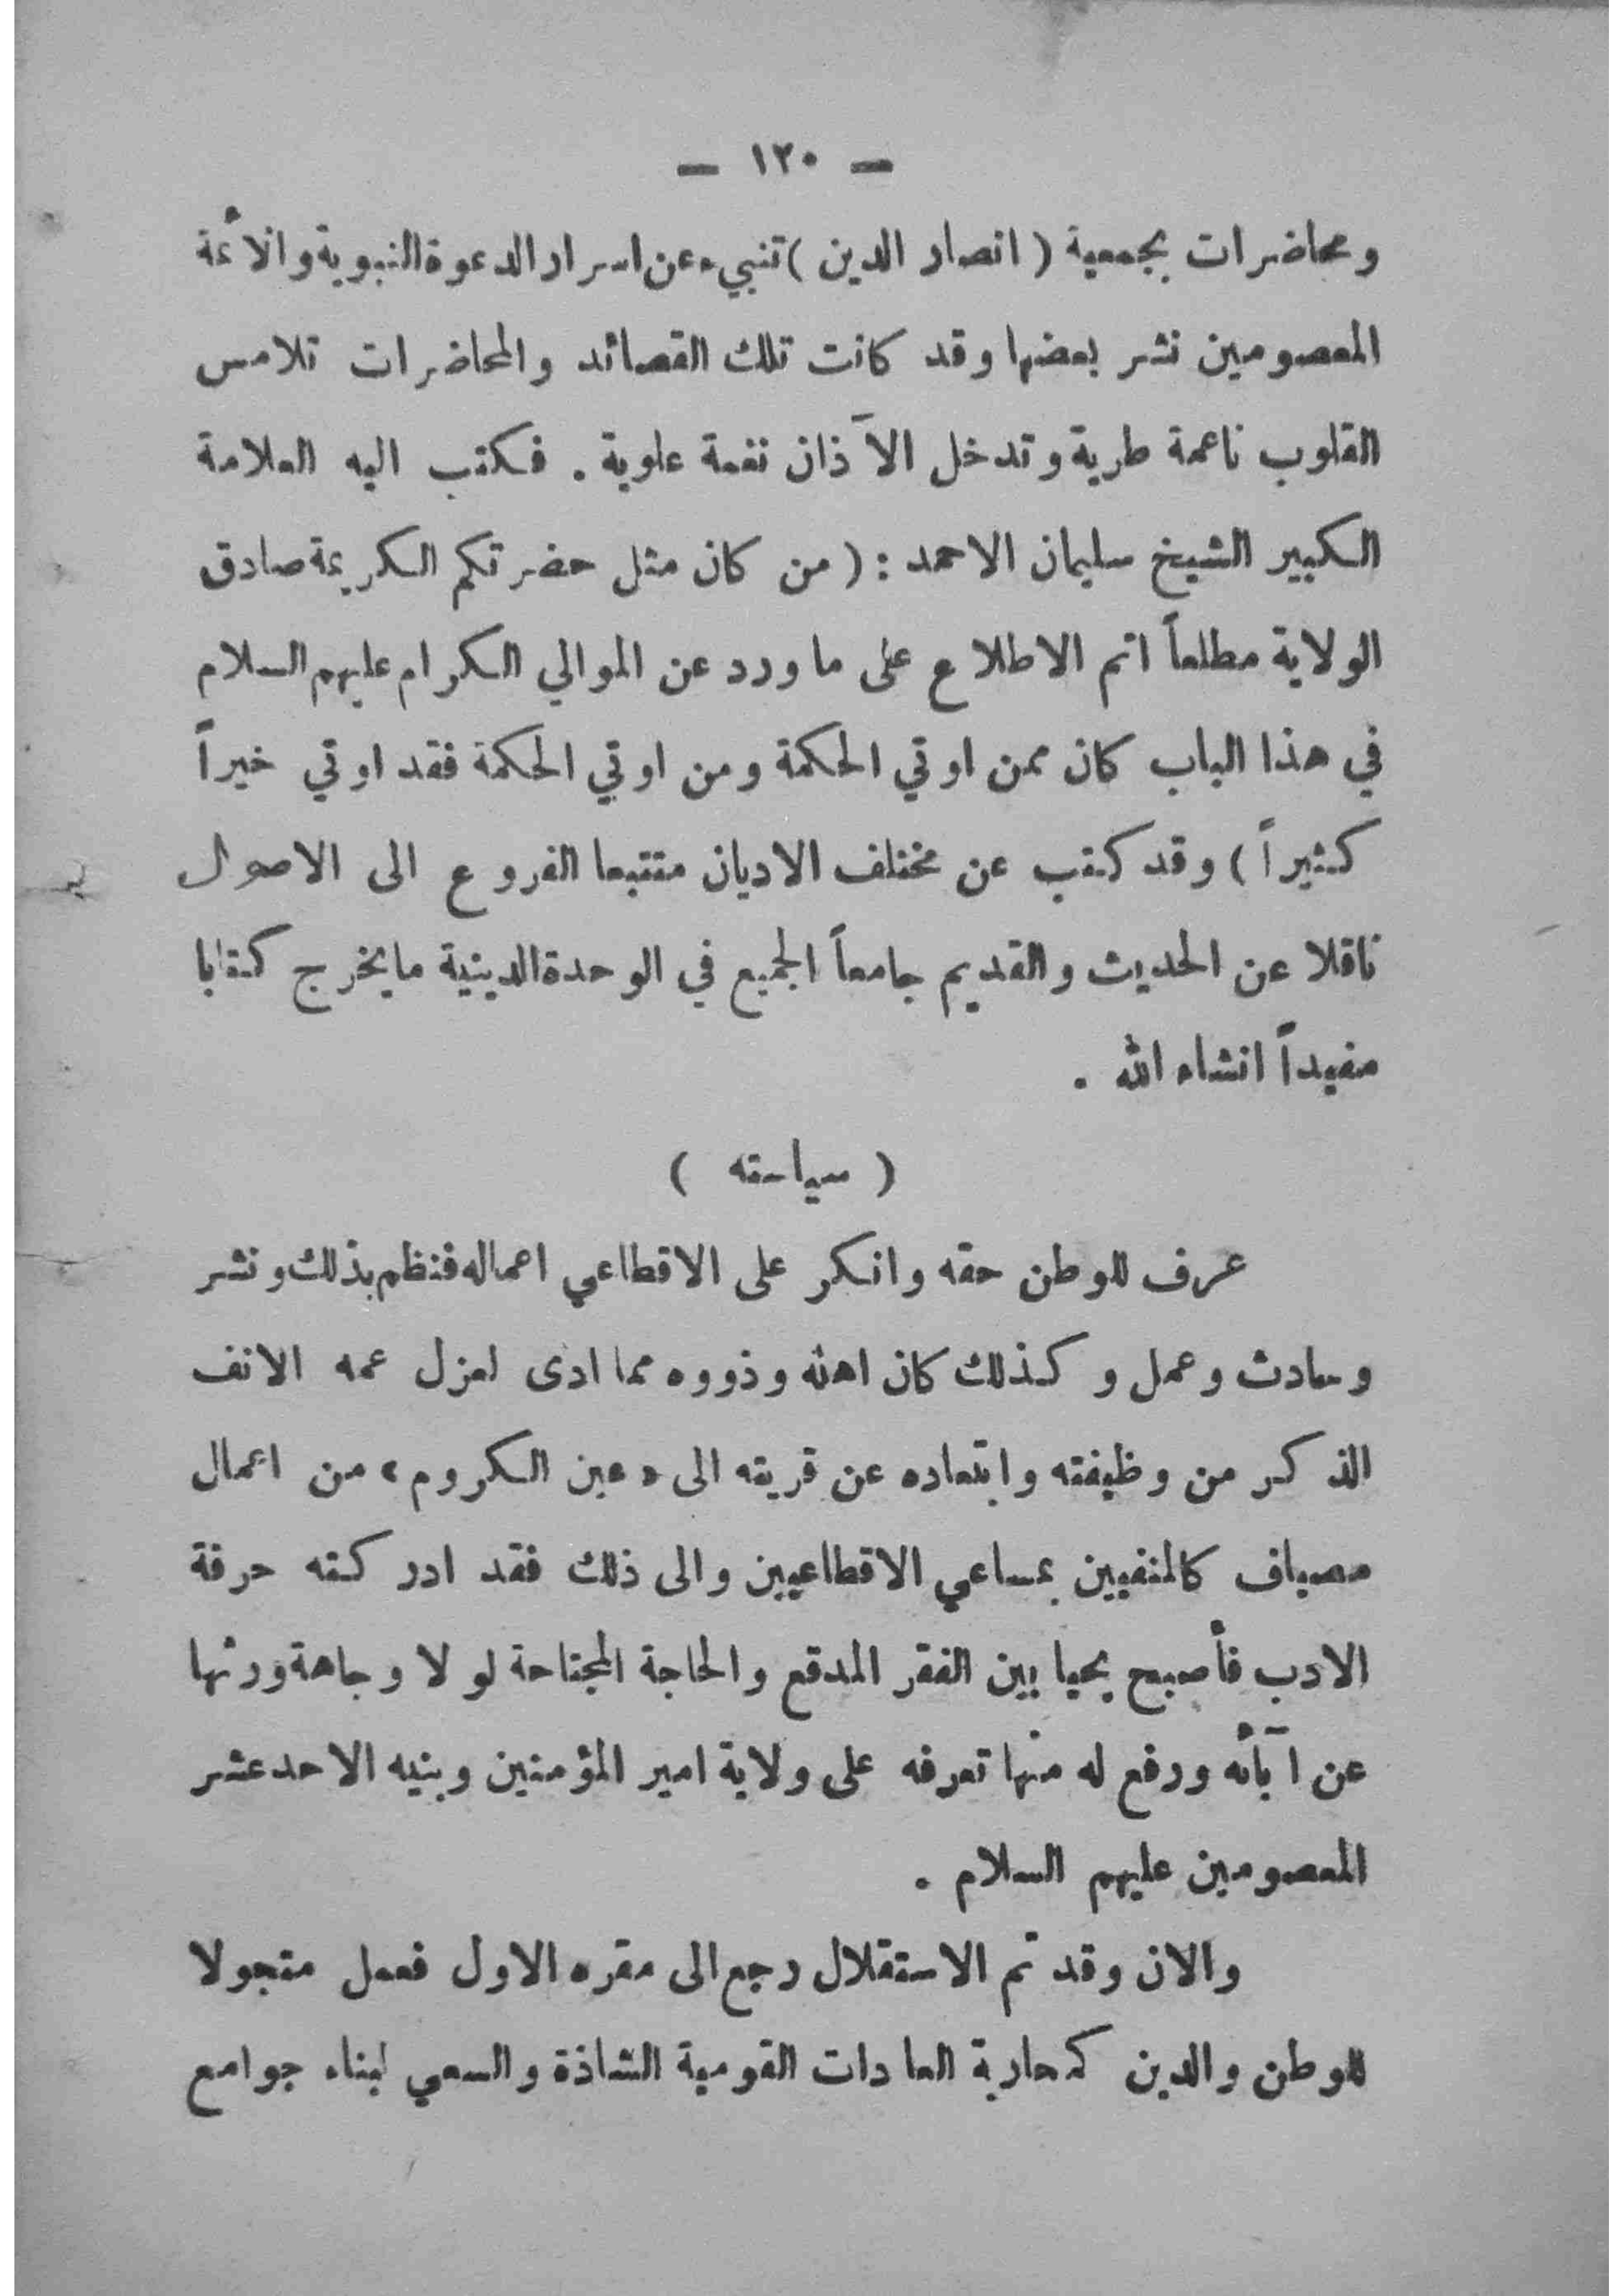 — ١٢٠ —
ومحاضرات بجمعية ( انصار الدين ) تنبيء عن اسرار الدعوة النبوية والأئمة
المعصومين نشر بعضها وقد كانت تلك القصائد والمحاضرات تلامس
القلوب ناعمة طرية وتدخل الآذان نغمة علوية . فكتب اليه العلامة
الكبير الشيخ سليمان الاحمد : ( من كان مثل حضرتكم الكريمة صادق
الولاية مطلعاً اتم الاطلاع على ما ورد عن الموالي الكرام عليهم السلام
في هذا الباب كان ممن اوتي الحكمة ومن اوتي الحكمة فقد اوتي خيراً
كثيراً ) وقد كتب عن مختلف الاديان متتبعا الفروع الى الاصول
ناقلا عن الحديث والقديم جامعاً الجميع في الوحدة الدينية ما يخرج كتابا
مفيداً انشاء الله .
( سياسته )
عرف للوطن حقه وانكر على الاقطاعي اعماله فنظم بذلك ونشر
وحادث وعمل وكذلك كان اهله وذووه مما ادى لعزل عمه الانف
الذكر من وظيفته وابتعاده عن قريته الى « عين الكروم » من اعمال
مصياف كالمنفيين بمساعي الاقطاعيين والى ذلك فقد ادركته حرفة
الادب فأصبح يحيا بين الفقر المدقع والحاجة المجتاحة لولا وجاهة ورثها
عن آبائه ورفع له منها تعرفه على ولاية امير المؤمنين وبنيه الاحد عشر
المعصومين عليهم السلام .
والان وقد تم الاستقلال رجع الى مقره الاول فعمل متجولا
للوطن والدين كمحاربة العادات القومية الشاذة والسعي لبناء جوامع